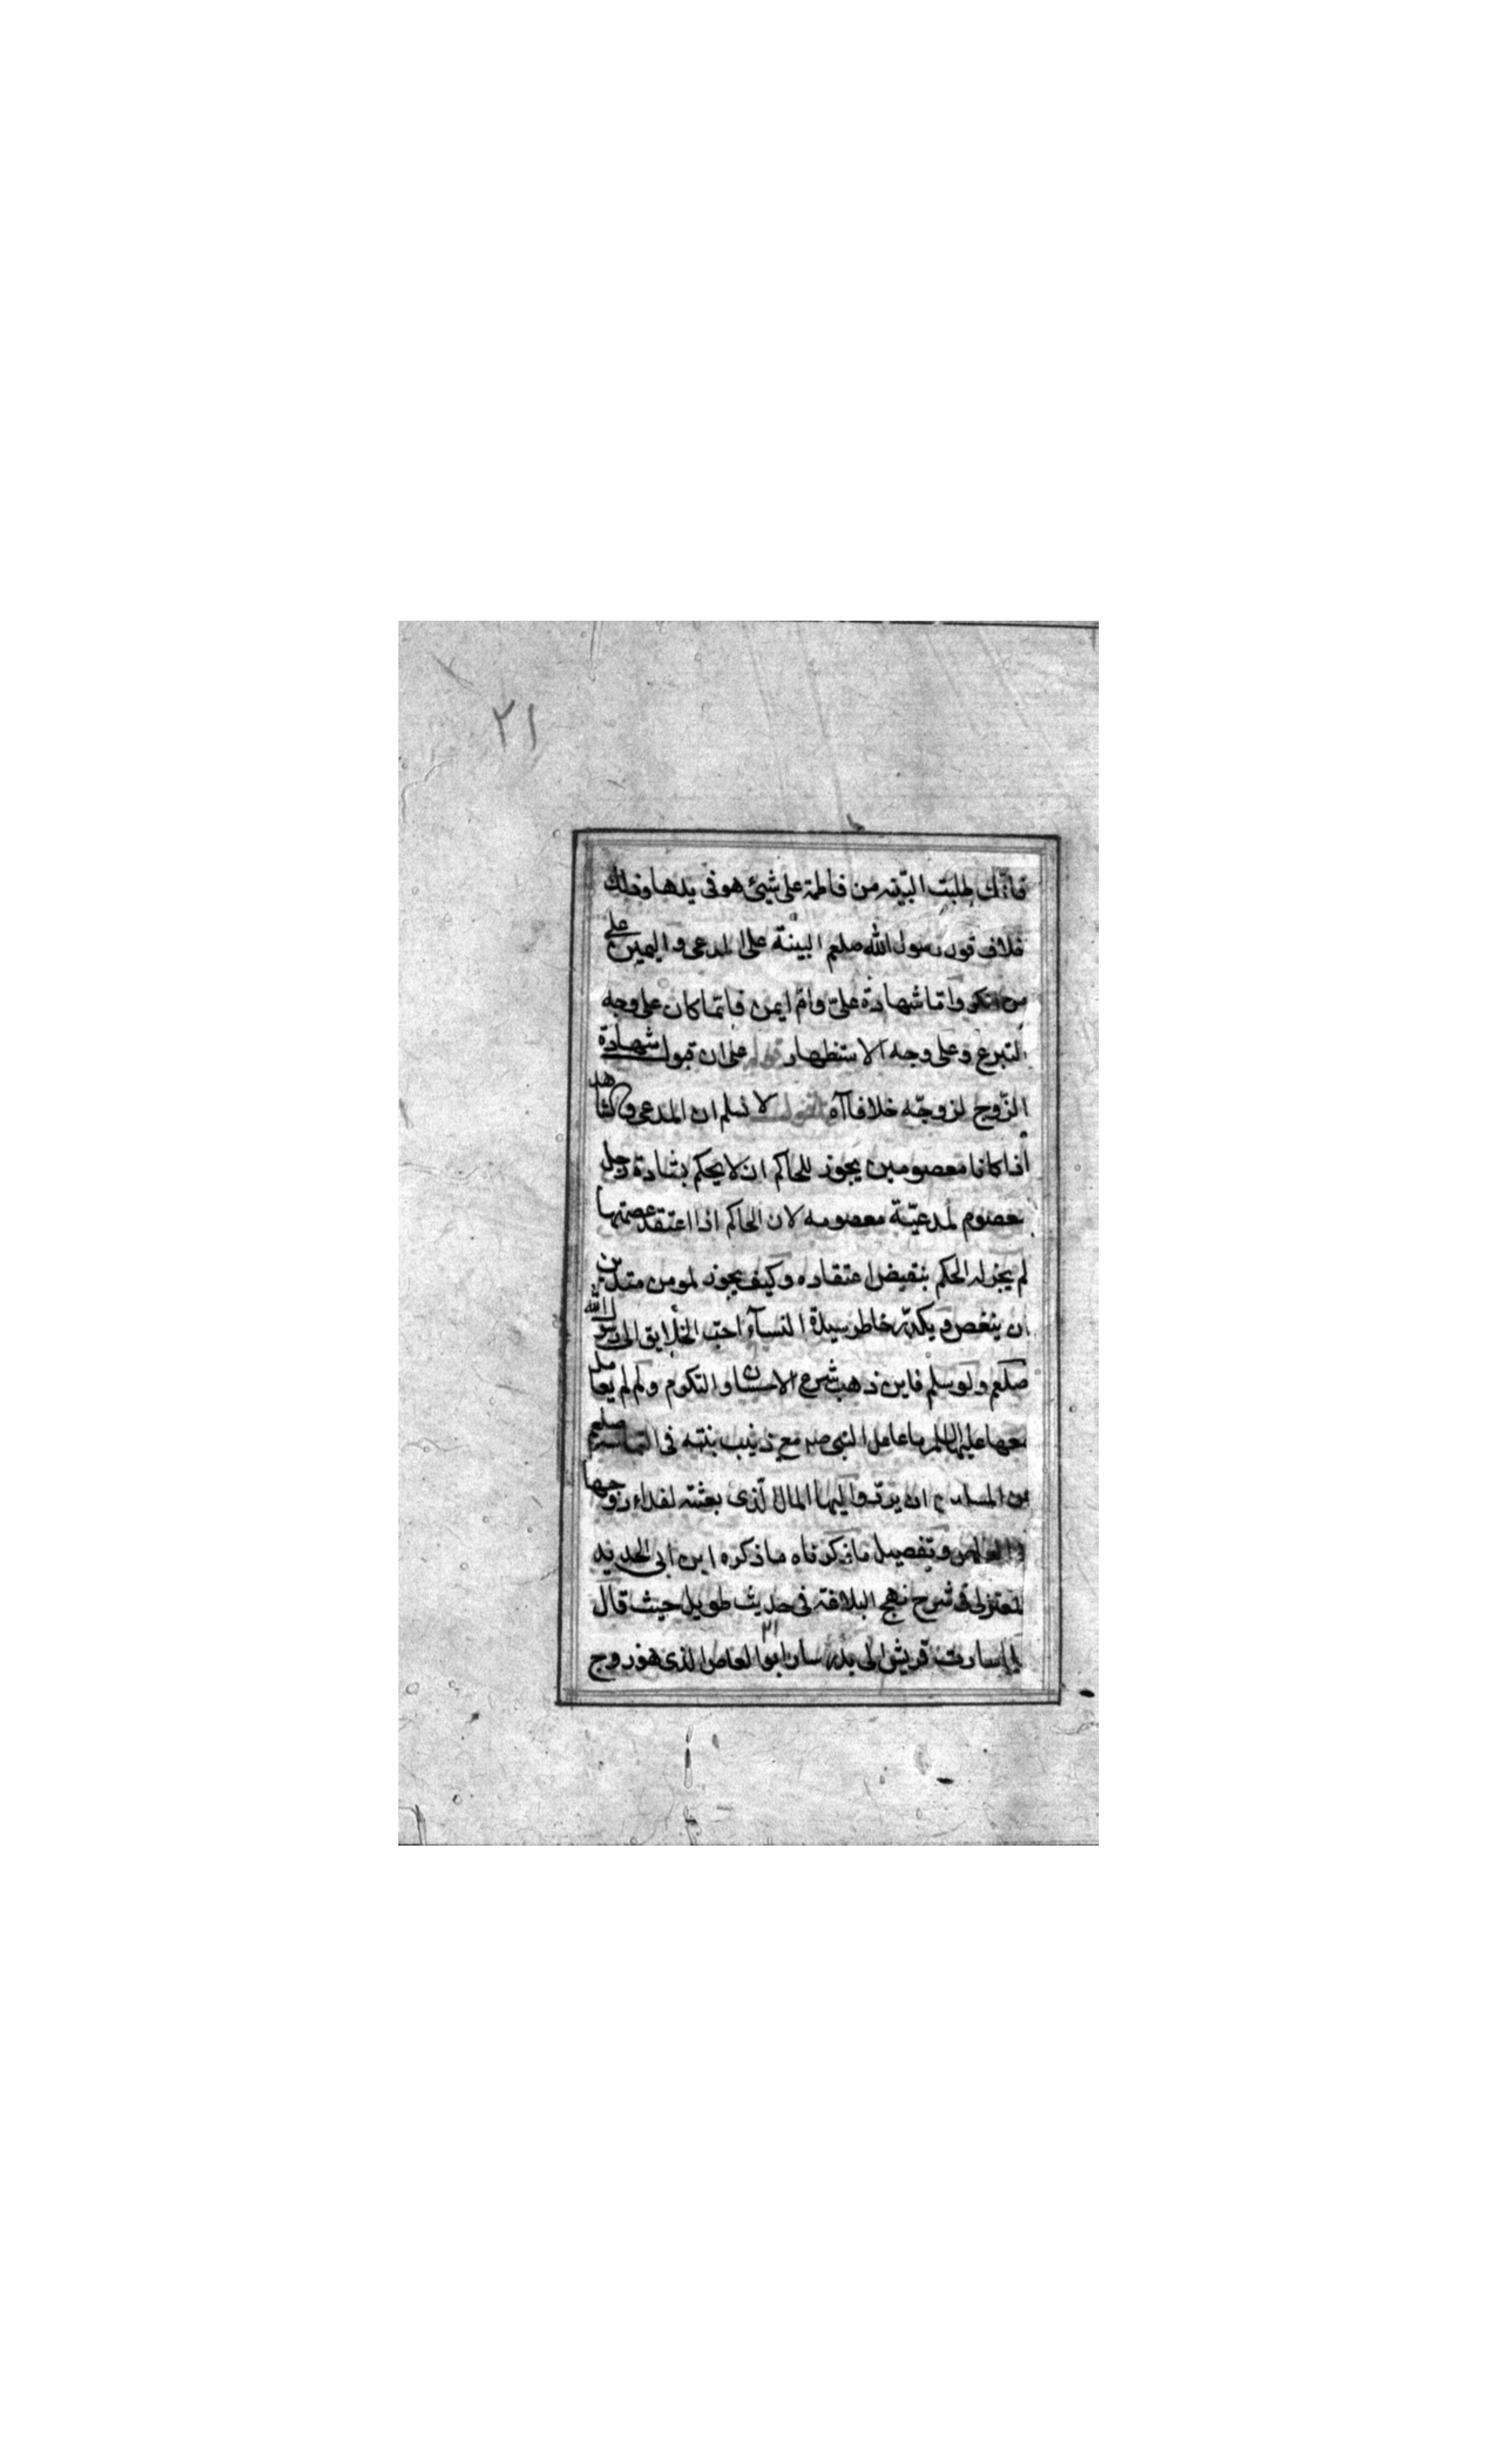 ٢١
فانّك طلبت البيّنه من فاطمة على شيئ هو فى يدها وذلك
خلاف قول رسول الله صلعم البينة على المدعى و اليمين على
من انكر وامّا شهادة علىّ وامّ ايمن فانّما كان على وجه
التبرع وعلى وجه الاستظهار على ان قبول شهادة
الزّوج لزوجّه خلافاآه لا نسلم ان المدعى والشاهد
اذا كانا معصومين يجوز للحاكم ان لا يحكم بشهادة رجل
معصوم لمدعيّة معصومه لان الحاكم اذا اعتقد عصمتها
لم يجز له الحكم بنقيض اعتقاده وكيف يجوز لمومن متدين
ان ينغص ويكدّر خاطر سيدة النسآء احبّ الخلايق الى رسول الله
صلعم ولو سلم فاين ذهب شرع الاحسان والتكرم ولم لم يعامل
معها عليها السلم ما عامل النبى مع زينب بنته فى التماسه صلعم
من المسلمين ان يردّوا اليها المال الّذى بعثته لفداء زوجها
ابى العاص وتفصيل ما ذكرناه ما ذكره ابن ابى الحديد
المعتزلى فى شرح نهج البلاغة فى حديث طويل حيث قال
لما سارت قريش الى بدر سار ابو العاص الذى هو زوج
٢١